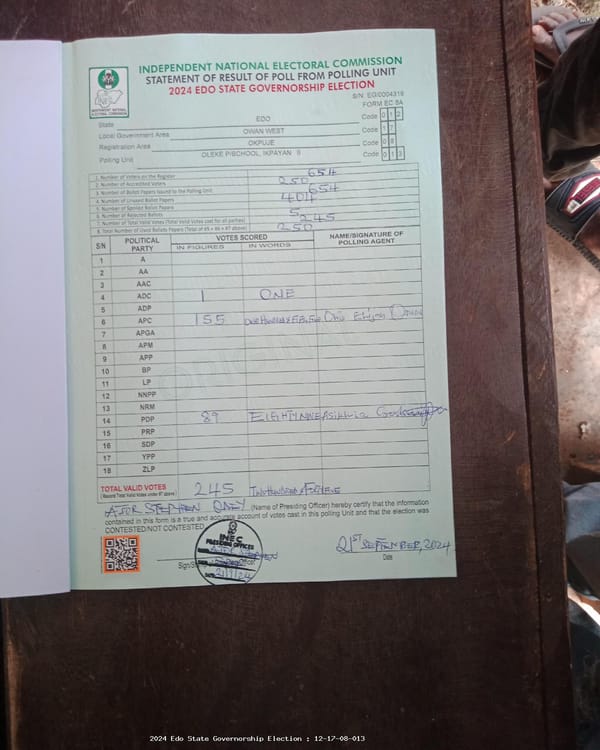 INDEPENDENT NATIONAL ELECTORAL COMMISSION
STATEMENT OF RESULT OF POLL FROM POLLING UNIT
2024 EDO STATE GOVERNORSHIP ELECTION
S/N. EG/0004318
FORM EC 8A
State EDO Code 1 2
Local Government Area OWAN WEST Code 1 7
Registration Area OKPUJE Code 0 8
Polling Unit OLEKE P/SCHOOL, IKPAYAN II Code 0 1 3
1. Number of Voters on the Register 654
2. Number of Accredited Voters 250
3. Number of Ballot Papers Issued to the Polling Unit 654
4. Number of Unused Ballot Papers 404
5. Number of Spoiled Ballot Papers
6. Number of Rejected Ballots 5
7. Number of Total Valid Votes (Total Valid Votes cast for all parties) 245
8. Total Number of Used Ballots Papers (Total of #5 + #6 + #7 above) 250
SN POLITICAL PARTY VOTES SCORED NAME/SIGNATURE OF POLLING AGENT
IN FIGURES IN WORDS
1 A
2 AA
3 AAC
4 ADC 1 ONE
5 ADP
6 APC 155
7 APGA
8 APM
9 APP
10 BP
11 LP
12 NNPP
13 NRM
14 PDP 89
15 PRP
16 SDP
17 YPP
18 ZLP
TOTAL VALID VOTES 245
(Record Total Valid Votes under #7 above)
AJOR STEPHEN (Name of Presiding Officer) hereby certify that the information
contained in this form is a true and accurate account of votes cast in this polling Unit and that the election was
CONTESTED/NOT CONTESTED
INEC
PRESIDING OFFICER
21/9/24
21ST SEPTEMBER, 2024
Date
2024 Edo State Governorship Election : 12-17-08-013